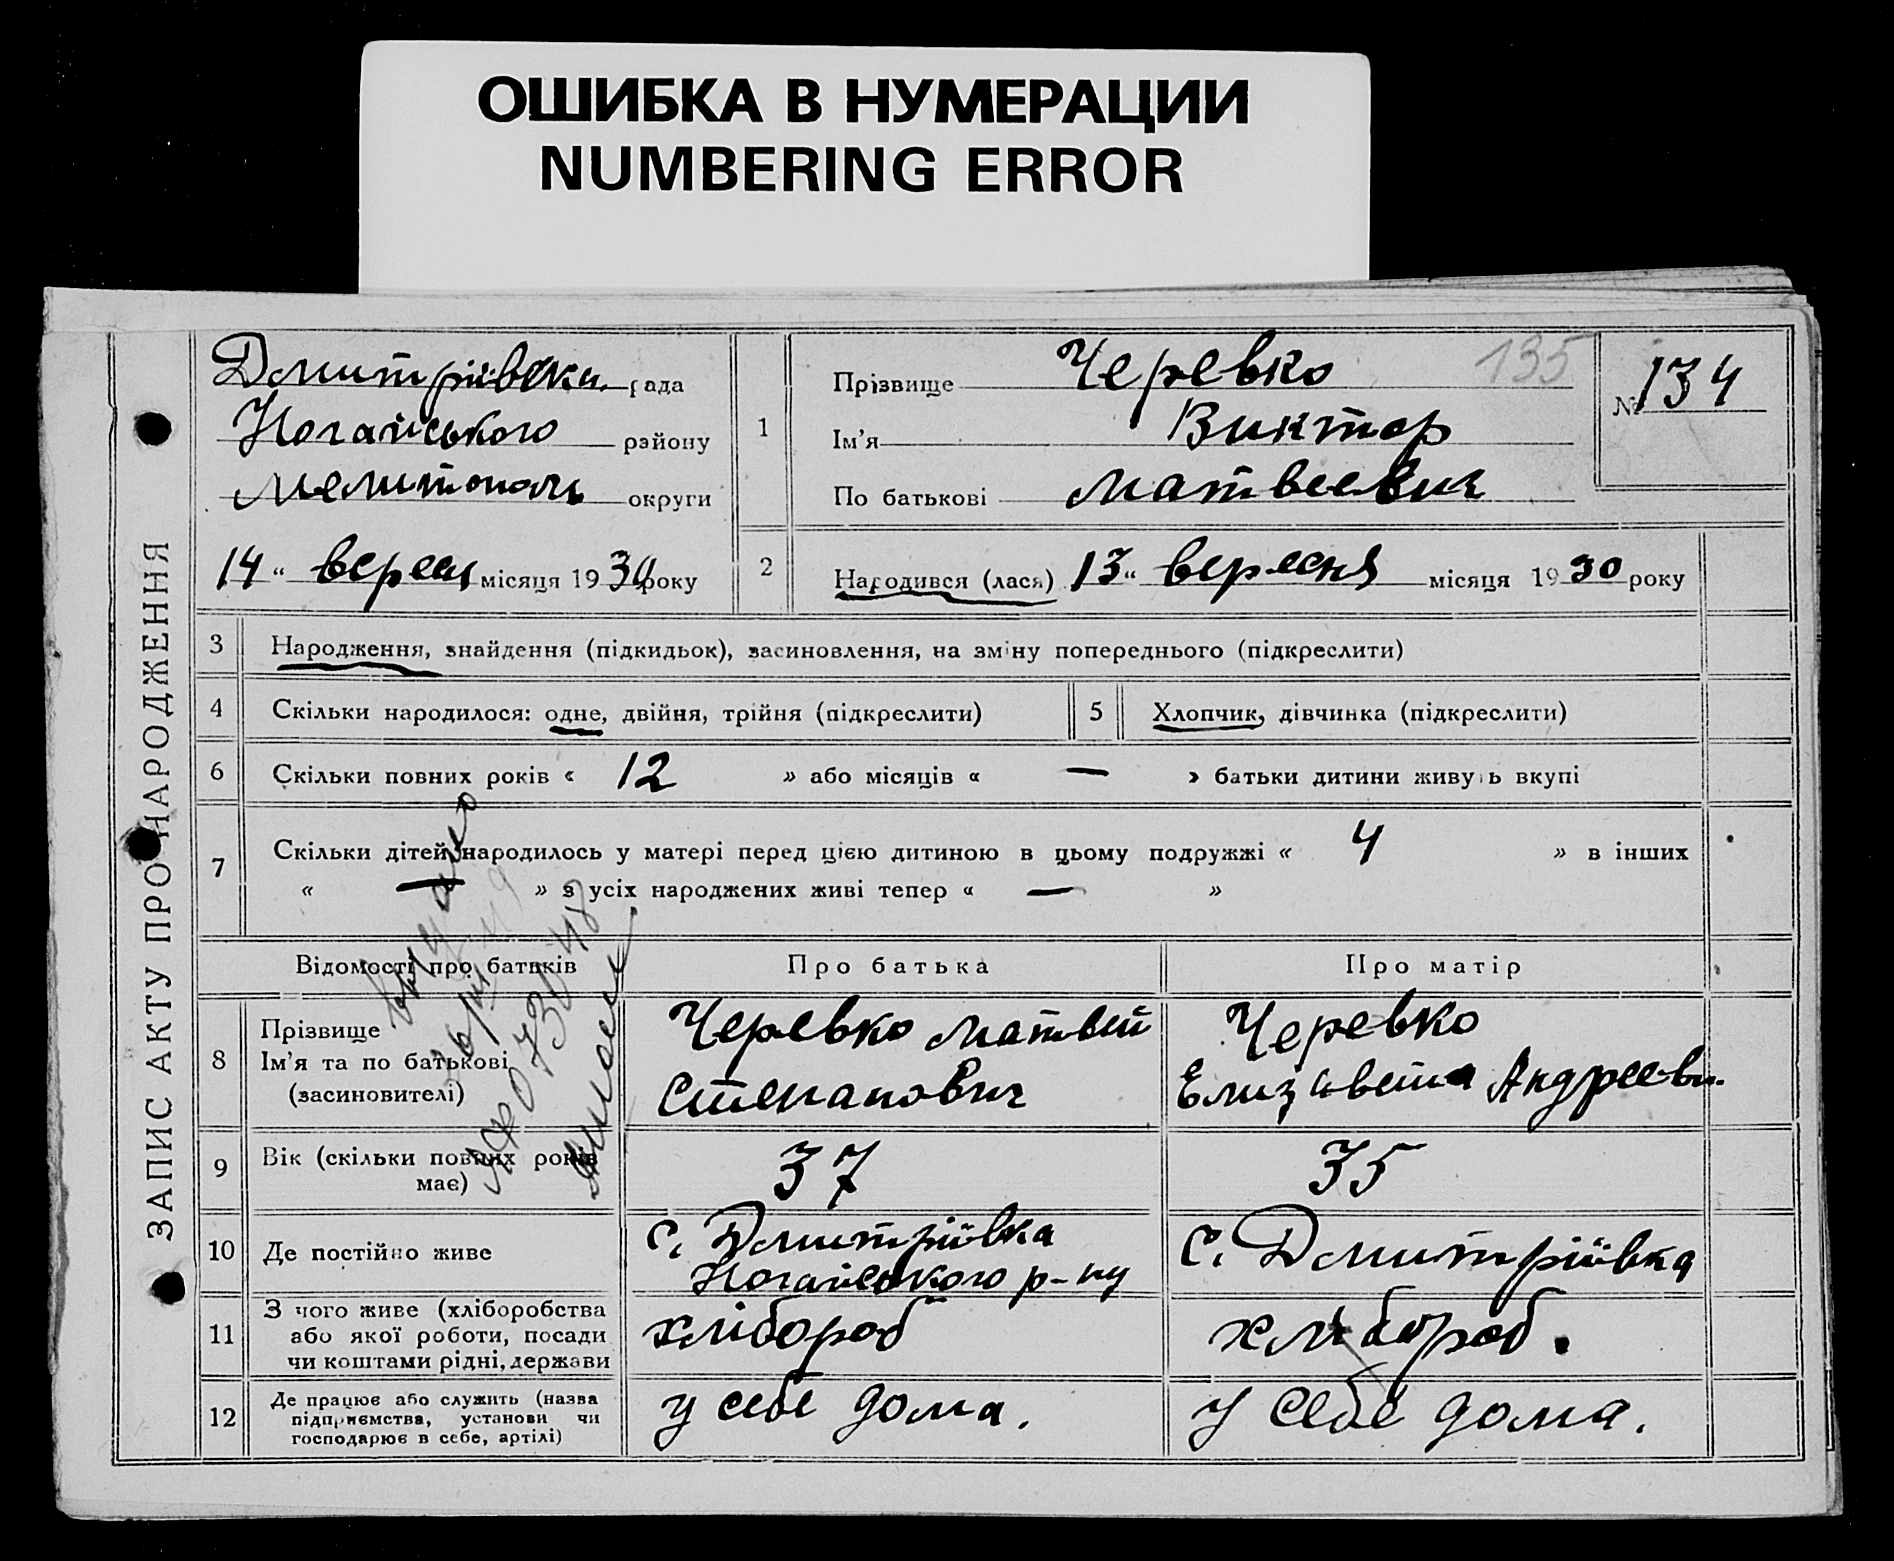 ОШИБКА В НУМЕРАЦИИ
NUMBERING ERROR
ЗАПИС АКТУ ПРО НАРОДЖЕННЯ
Дмитріївска. рада
Ногайського району
Мелитополь округи
14 " вересня місяця 1930 року
1
Прізвище Черевко 135
Ім'я Виктор
По батькові Матвеевич
№ 134
2 Народився (лася) 13 " вересня місяця 1930 року
3 Народження, знайдення (підкидьок), засиновлення, на зміну попереднього (підкреслити)
4 Скільки народилося: одне, двійня, трійня (підкреслити) 5 Хлопчик, дівчинка (підкреслити)
6 Скільки повних років « 12 » або місяців « — » батьки дитини живуть вкупі
7 Скільки дітей народилось у матері перед цією дитиною в цьому подружжі « 4 » в інших
« — » з усіх народжених живі тепер « — »
Відомості про батьків Про батька Про матір
8 Прізвище
Ім'я та по батькові
(засиновителі)
Черевко Матвей
Степанович
Черевко
Елизавета Андреевн.
9 Вік (скільки повних років має) 37 35
10 Де постійно живе
с. Дмитріївка
Ногайського р-ну
с. Дмитріївка
11 З чого живе (хліборобства
або якої роботи, посади
чи коштами рідні, держави
хлібороб
хлібороб.
12 Де працює або служить (назва
підприємства, установи чи
господарює в себе, артілі)
у себе дома.
у себе дома.